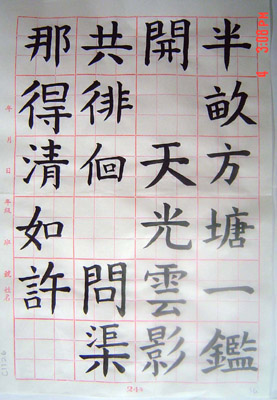 半畝方塘一鑑
開 天光雲影
共徘徊 問渠
那得清如許
年 月 日 年級 班 號 姓名